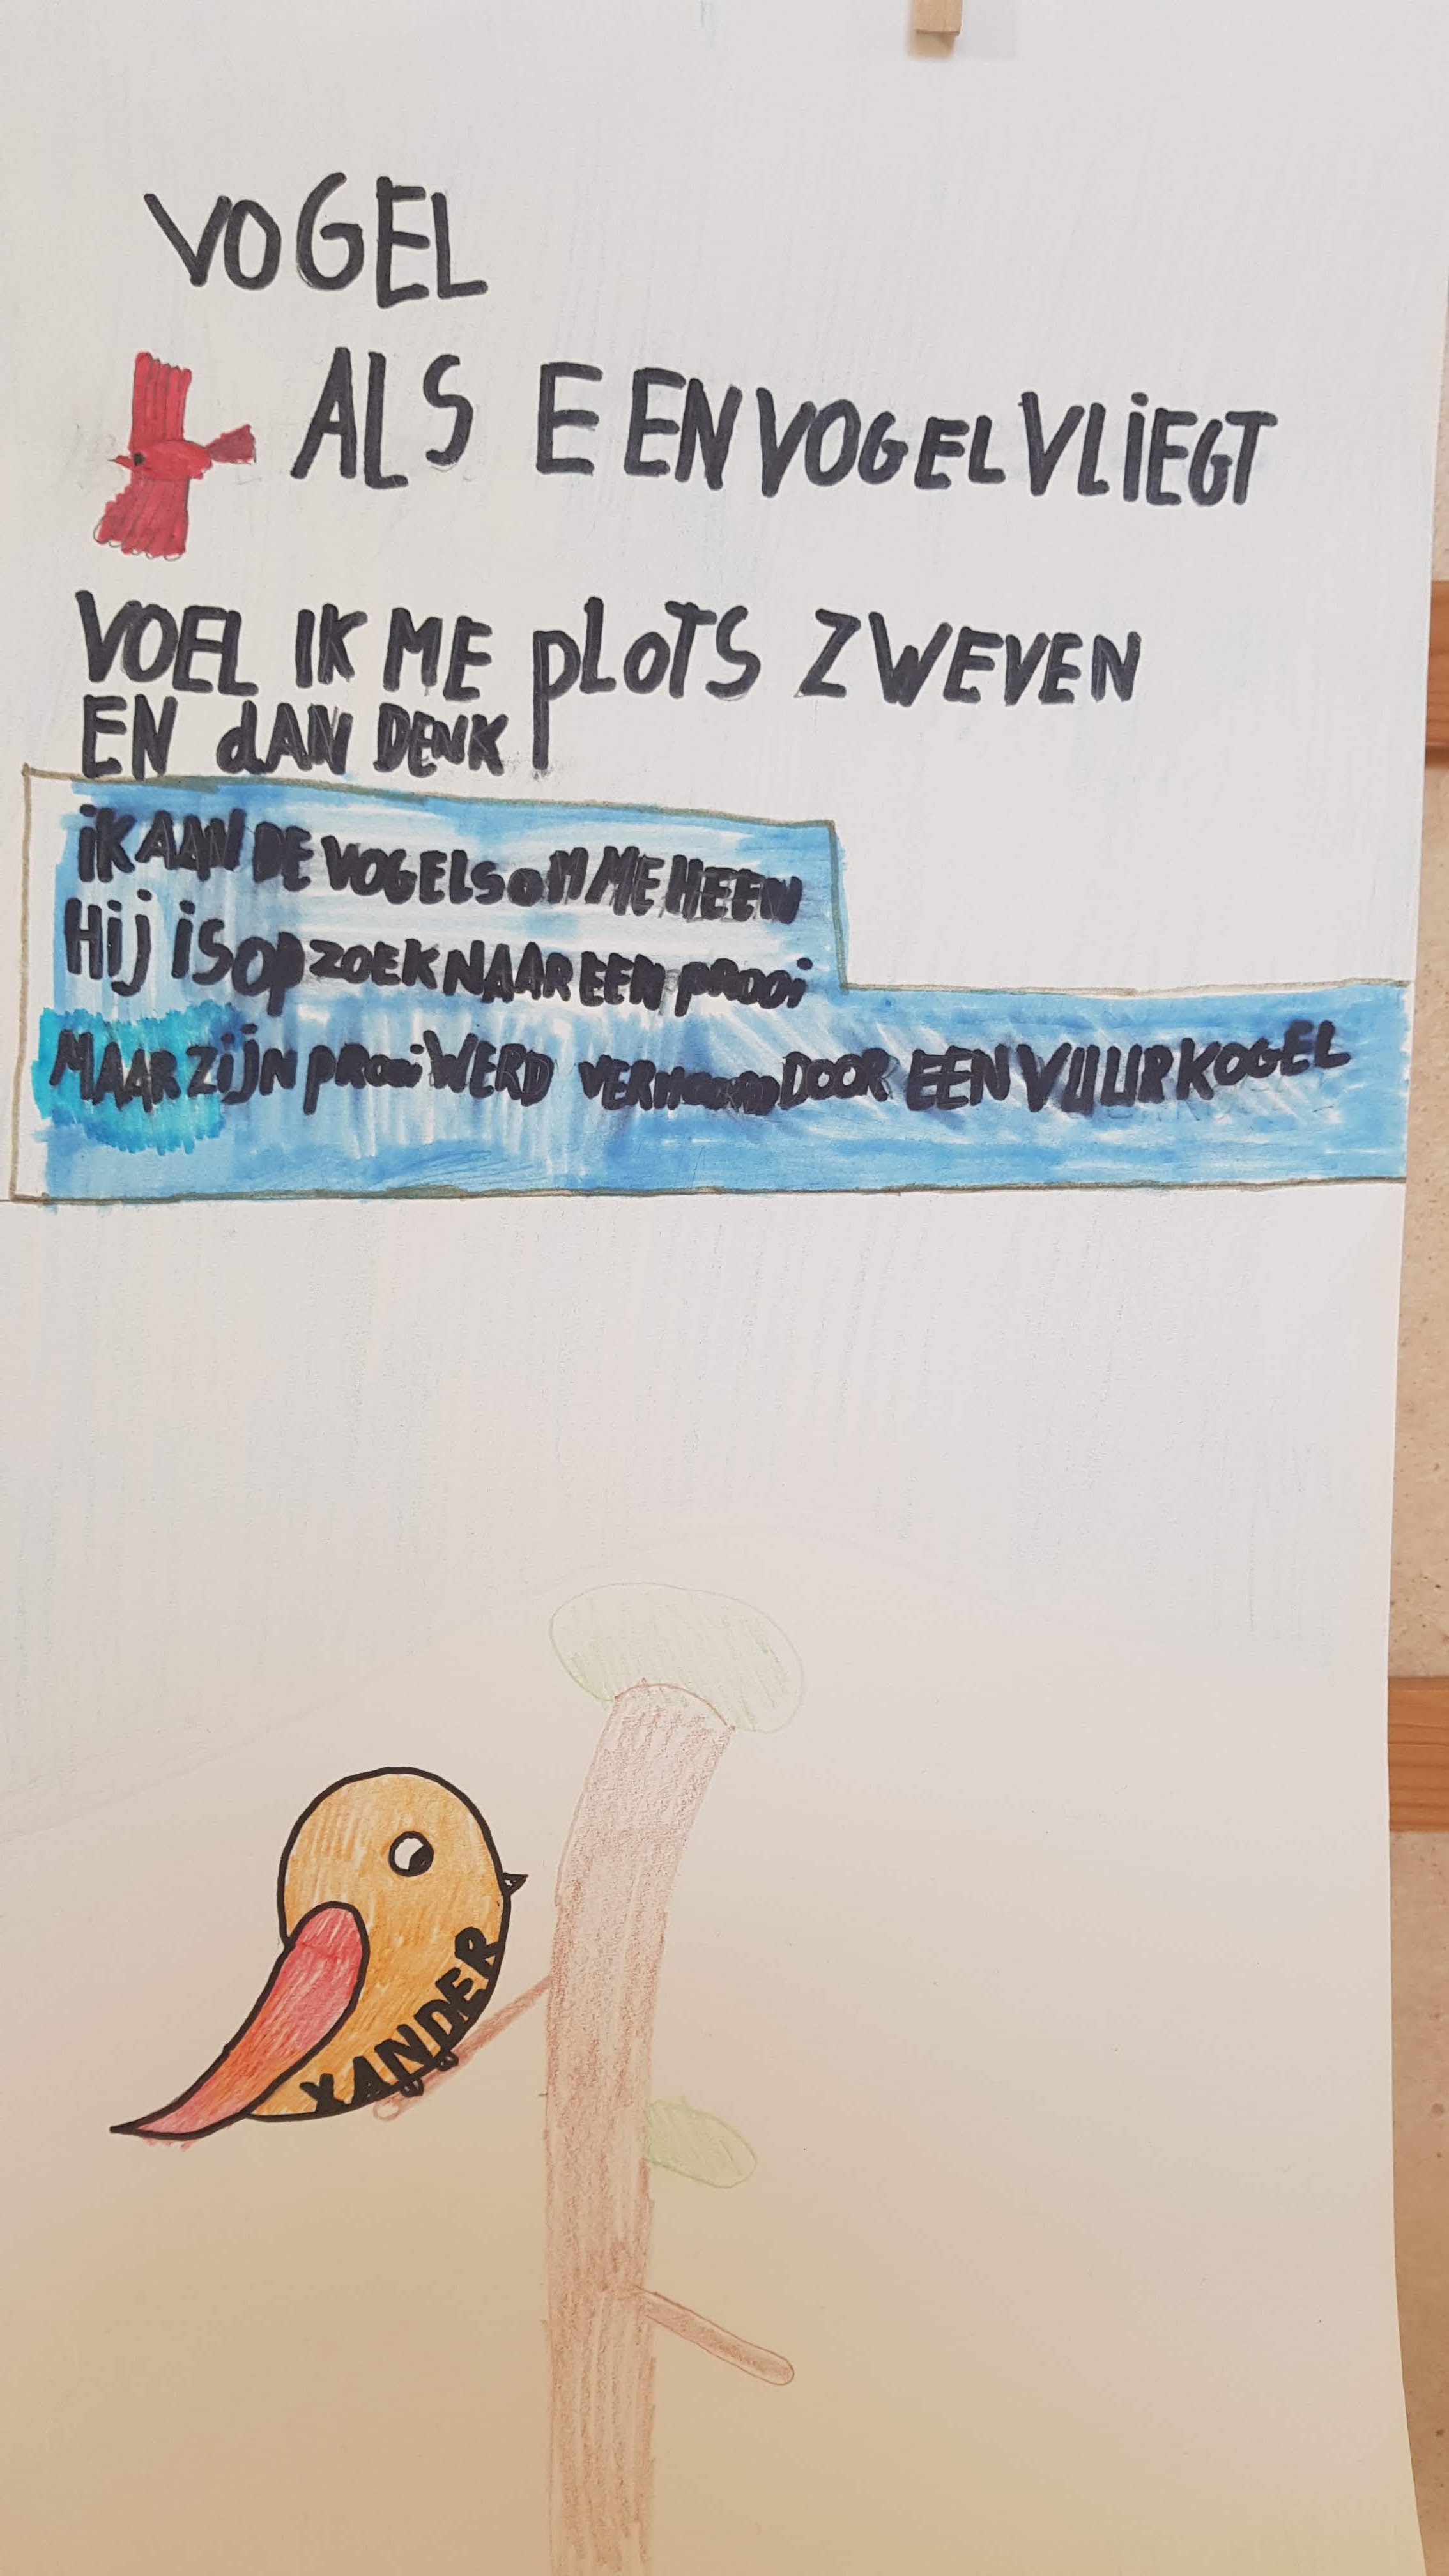 VOGEL
ALS EEN VOGEL VLIEGT
VOEL IK ME pLOTS ZWEVEN
EN dAN DENK
iK AAN DE VOGELS OM ME HEEN
Hij iS op ZOEK NAAR EEN pRooi
MAAR ZijN pRooi WERD DOOR EEN VUURKOGEL
XANDER